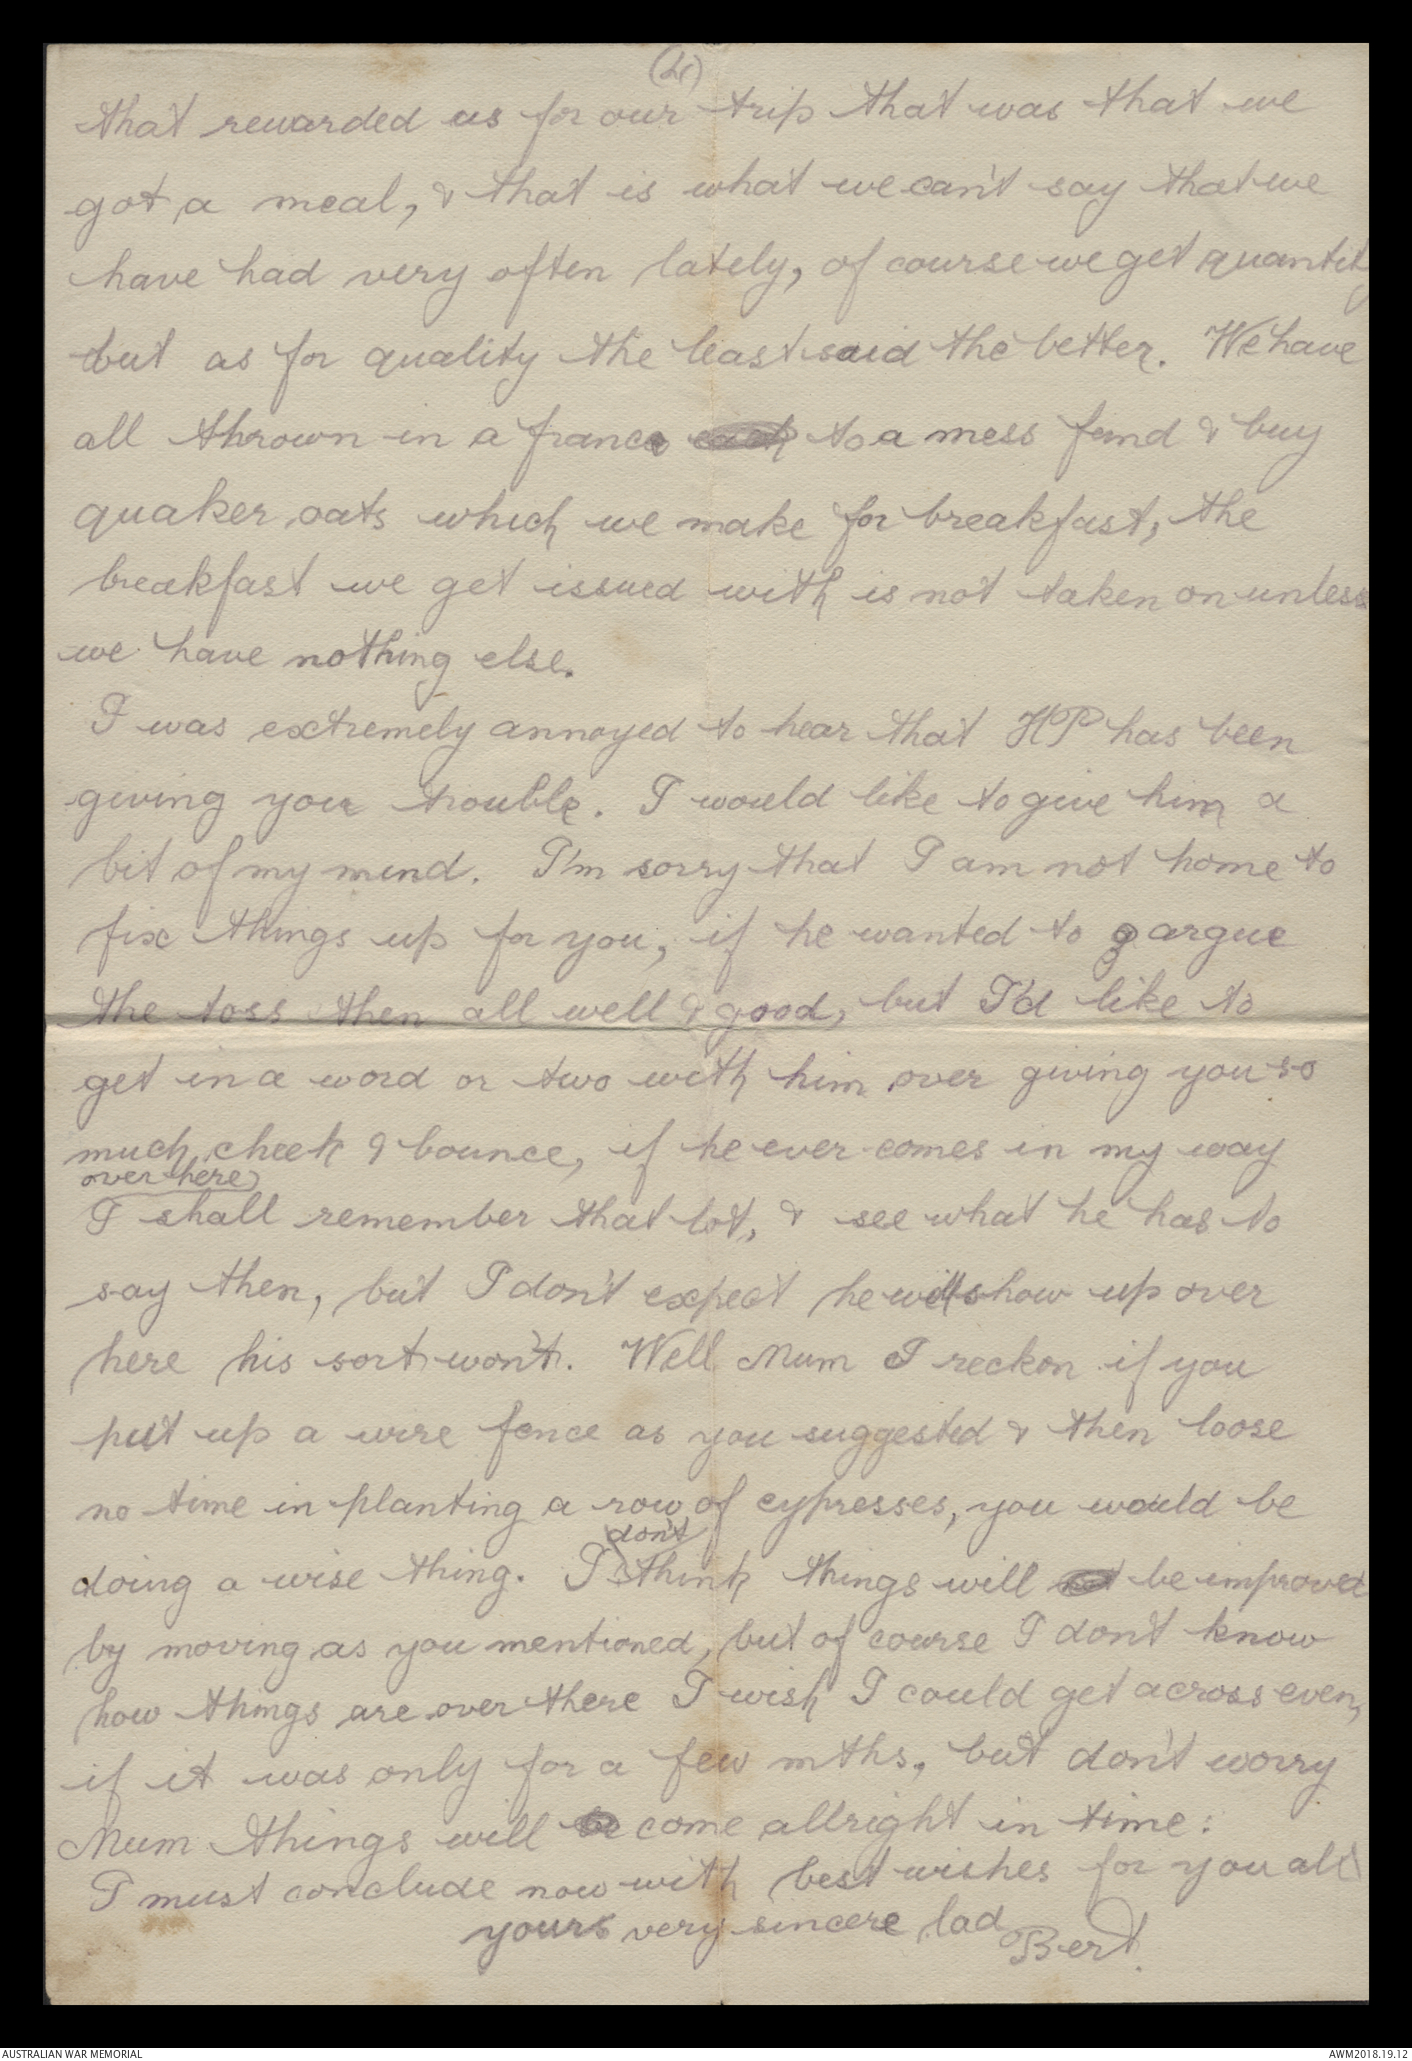 that rewarded us for our trip that was that we
got a meal, & that is what we can't say that we
have had very often lately, of course we get quantity
but as for quality the least said the better. We have
all thrown in a franc to a mess fund & buy
quaker oats which we make for breakfast, the
breakfast we get issued with is not taken on unless
we have nothing else.
I was extremely annoyed to hear that HP has been
giving you trouble. I would like to give him a
bit of my mind. I'm sorry that I am not home to
fix things up for you, if he wanted to argue
the toss then all well & good, but I'd like to
get in a word or two with him over giving you so
much cheek & bounce, if he ever comes in my way
over here
I shall remember that lot, & see what he has to
say then, but I don't expect he will show up over
here his sort won't. Well Mum I reckon if you
put up a wire fence as you suggested & then loose
no time in planting a row of cypresses, you would be
don't
doing a wise thing. I think things will be improved
by moving as you mentioned, but of course I don't know
how things are over there I wish I could get across even,
if it was only for a few mths, but don't worry
Mum things will come allright in time:
I must conclude now with best wishes for you all
yours very sincere lad
Bert.
AUSTRALIAN WAR MEMORIAL
AWM2018.19.12